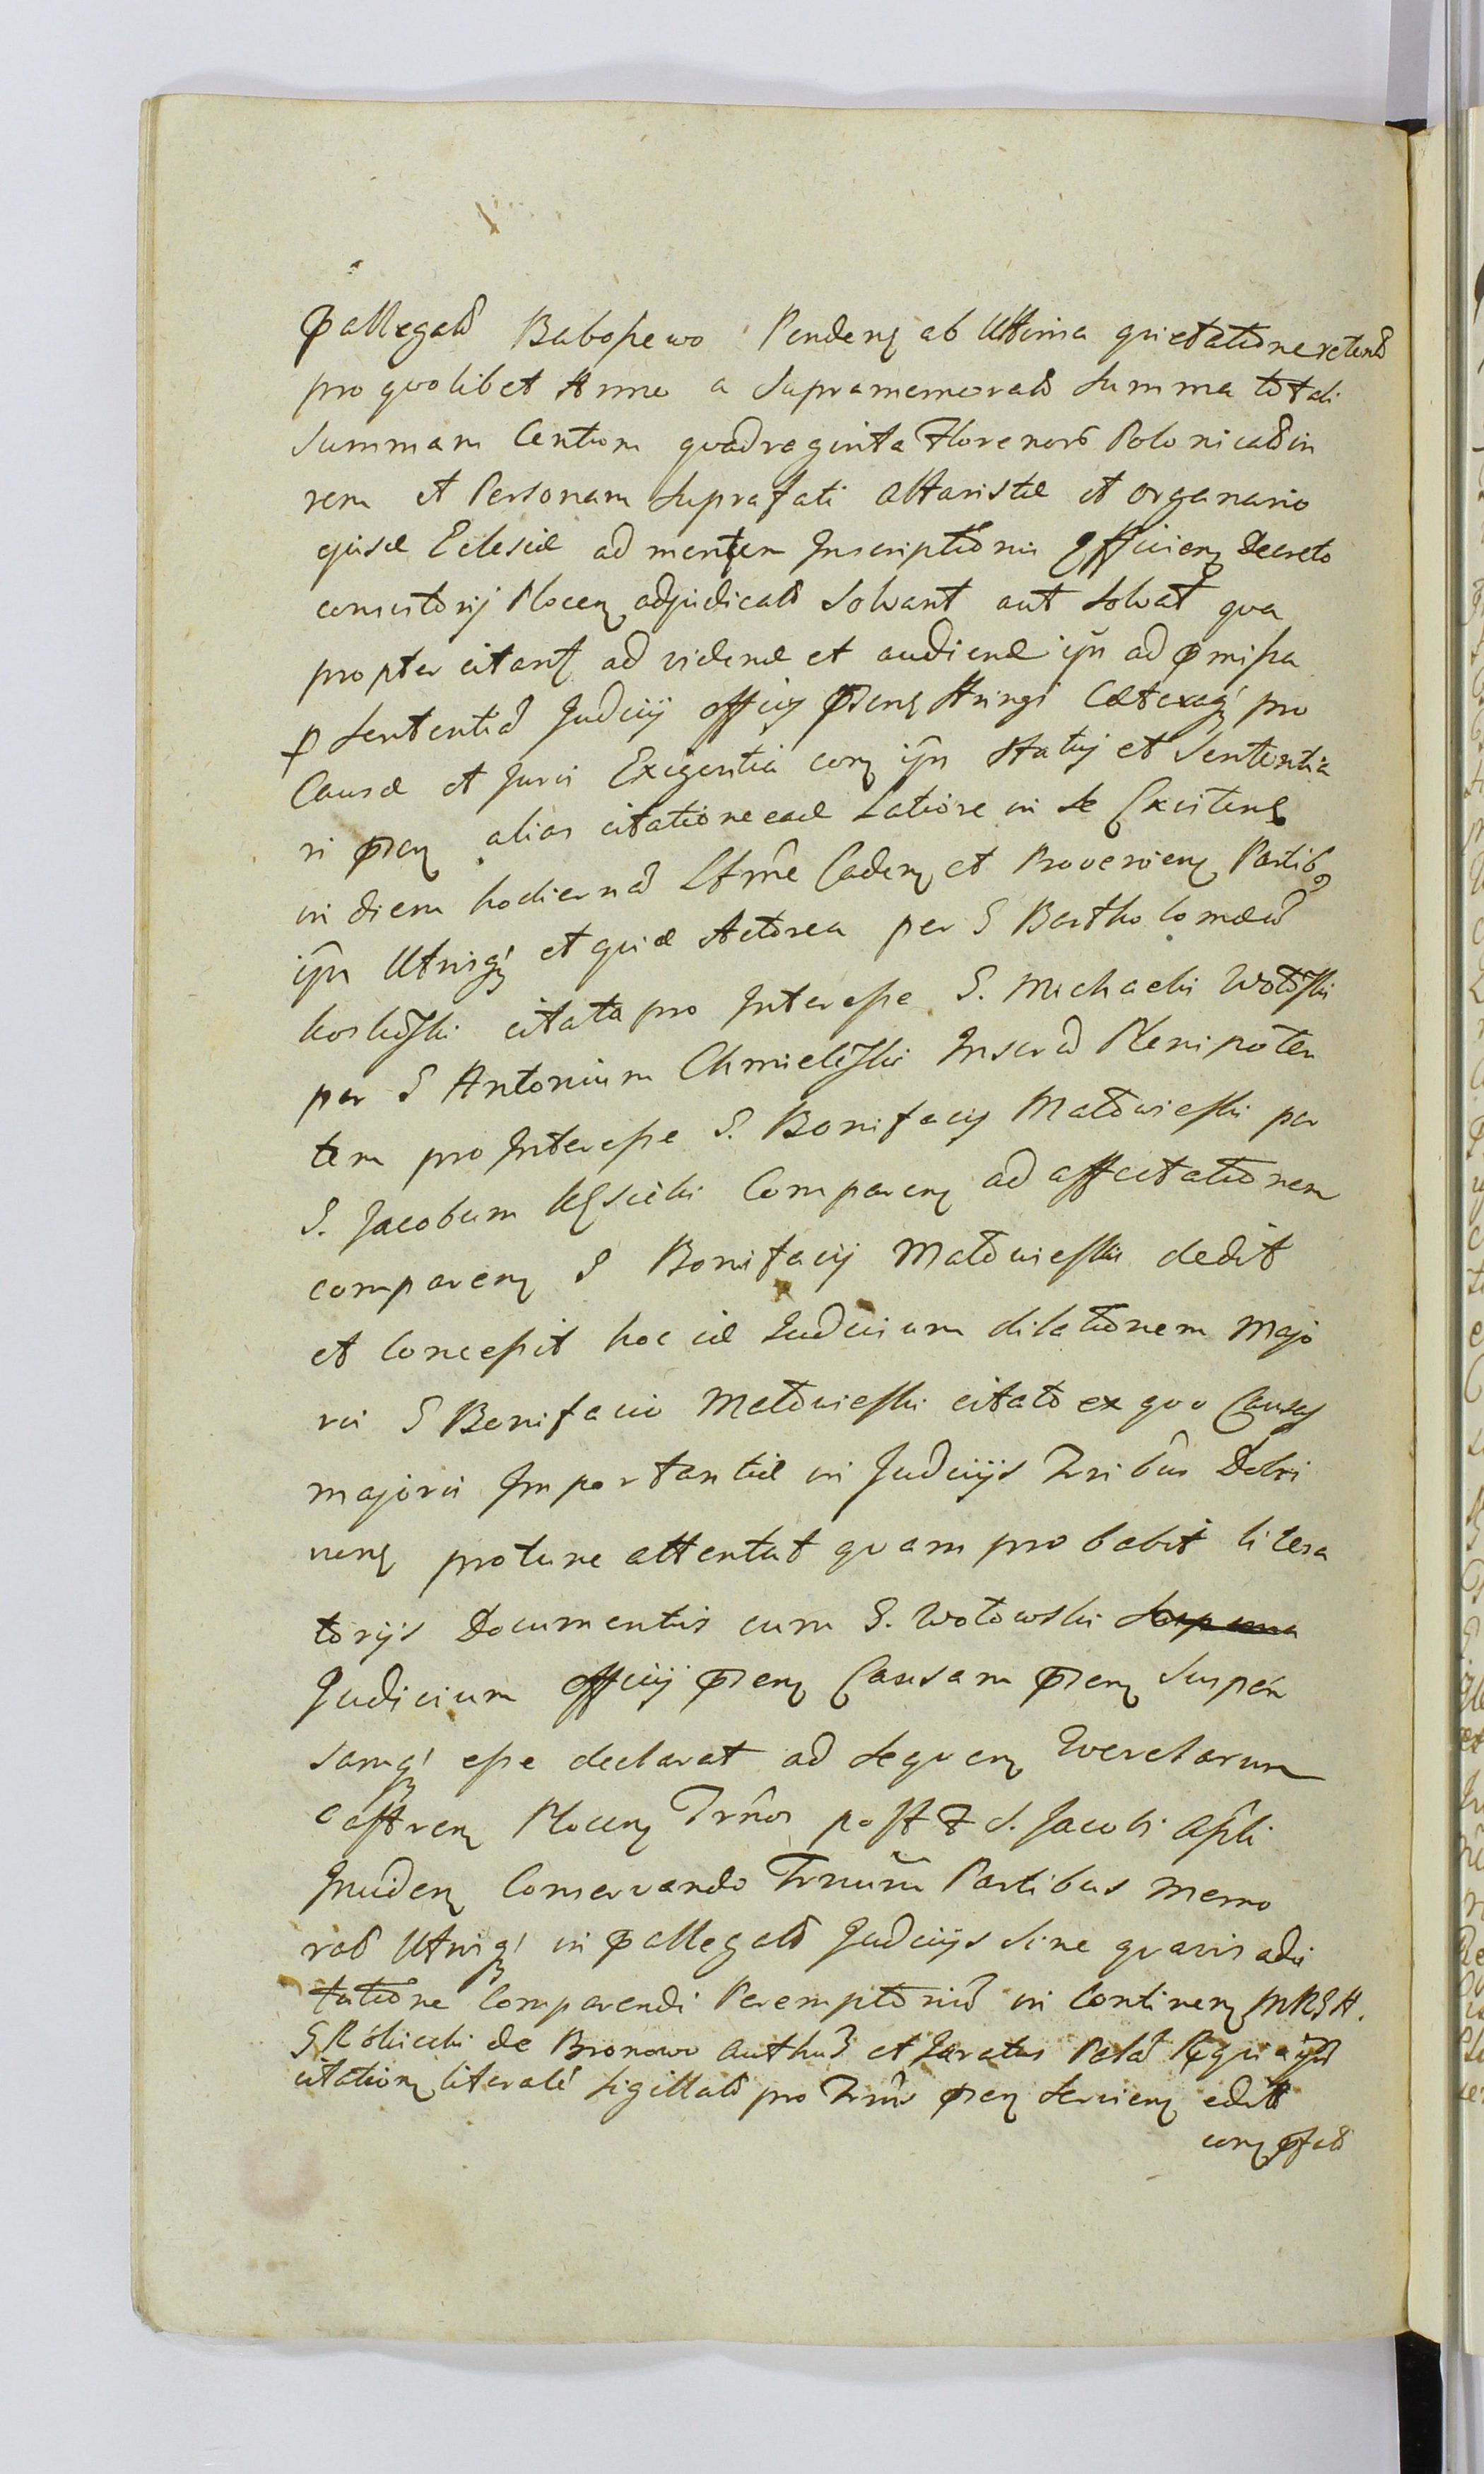 pallegato Babopewo Pendens ab Ultima quietatione retento
pro quolibet Anno a Supramemorato Summa totali
Summam Centum quadraginta Florenor Polonicaliu
rem et Personam Suprafati Altaristæ et organario
ejusd Eclesiæ ad mentem Inscriptionis Officien Decreto
consistorij Plocen adjudicato Solvant aut Solvat qua
propter citant ad vidend et audiend ijn ad pmissa
p Sententia Judicij officij pren Stringi Cæteraq pro
Causæ et Juris Exigentia com ijn Statuj et Sententia
ri pren alias citatione ead Latiore in se Existens
in diem hodiernã Ltme Caden et Provenien Partib9
ijn Utrisq et quid Actorea per G Bartholomæu
citata pro Interesse G. Michaelis Wotoski
per G Antonium Chmieleski Inscrd Plenipoten
tem pro Interesse G. Bonifacij Matowieski per
G. Jacobum Comparen ad affectationem
comparen G Bonifacij Matowieski dedit
et Concessit hoc id Judicium dilationem Majo
ris G Bonifacio Matowieski citato ex quo Causas
majoris Importantiæ in Judicijs Tribus Dobri
nens protunc attentat quam probabit litera
torijs Documentis cum G. Wotowski
Judicium officij pren Causam pren Suspen
samq esse declarat ad Sequen Querelarum
Castren Plocen Trnos post F S. Jacobi Apli
Inciden Conservando Trnum Partibus Memo
rat Utrisq in pallegato Judicijs Sine quavis adci
tatione Comparendi Peremptoriu in Continen MRSA.
G Róścicki de Bronowo et Juratus
citation literalé Sigillato pro Trno pren Servien edit
com pfato